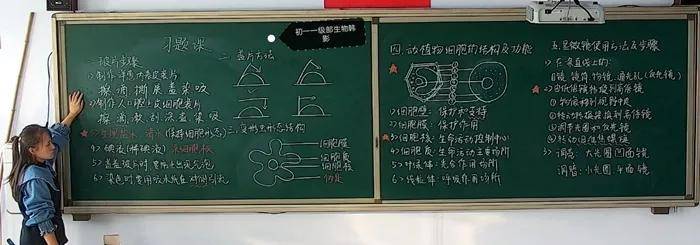 初一一级部生物韩
影
习题课
一、制片步骤
1>制作洋葱内表皮装片
擦 滴 撕 展 盖 染 吸
2>制作人口腔上皮细胞装片
擦 滴 漱 刮 涂 盖 染 吸
3>生理盐水 清水(保持细胞形态)
4>碘液(稀碘液) 染细胞核
5>盖盖玻片时要防止出现气泡
6>染色时要用吸水纸在对侧引流
二、盖片方法
三、变形虫形态结构
细胞膜
细胞质
细胞核
伪足
四、动植物细胞的结构及功能
1>细胞壁:保护和支持
2>细胞膜:保护作用
3>细胞核:生命活动控制中心
4>细胞质:生命活动主要场所
5>叶绿体:光合作用场所
6>线粒体:呼吸作用场所
五、显微镜使用方法及步骤
1>在一条直线上的:
目镜、镜筒、物镜、通光孔(反光镜)
2>由低倍镜转换到高倍镜
①物像移到视野中央
②转动转换器换到高倍镜
③调节光圈和反光镜
④转动细准焦螺旋
3>调亮:大光圈 凹面镜
调暗:小光圈 平面镜